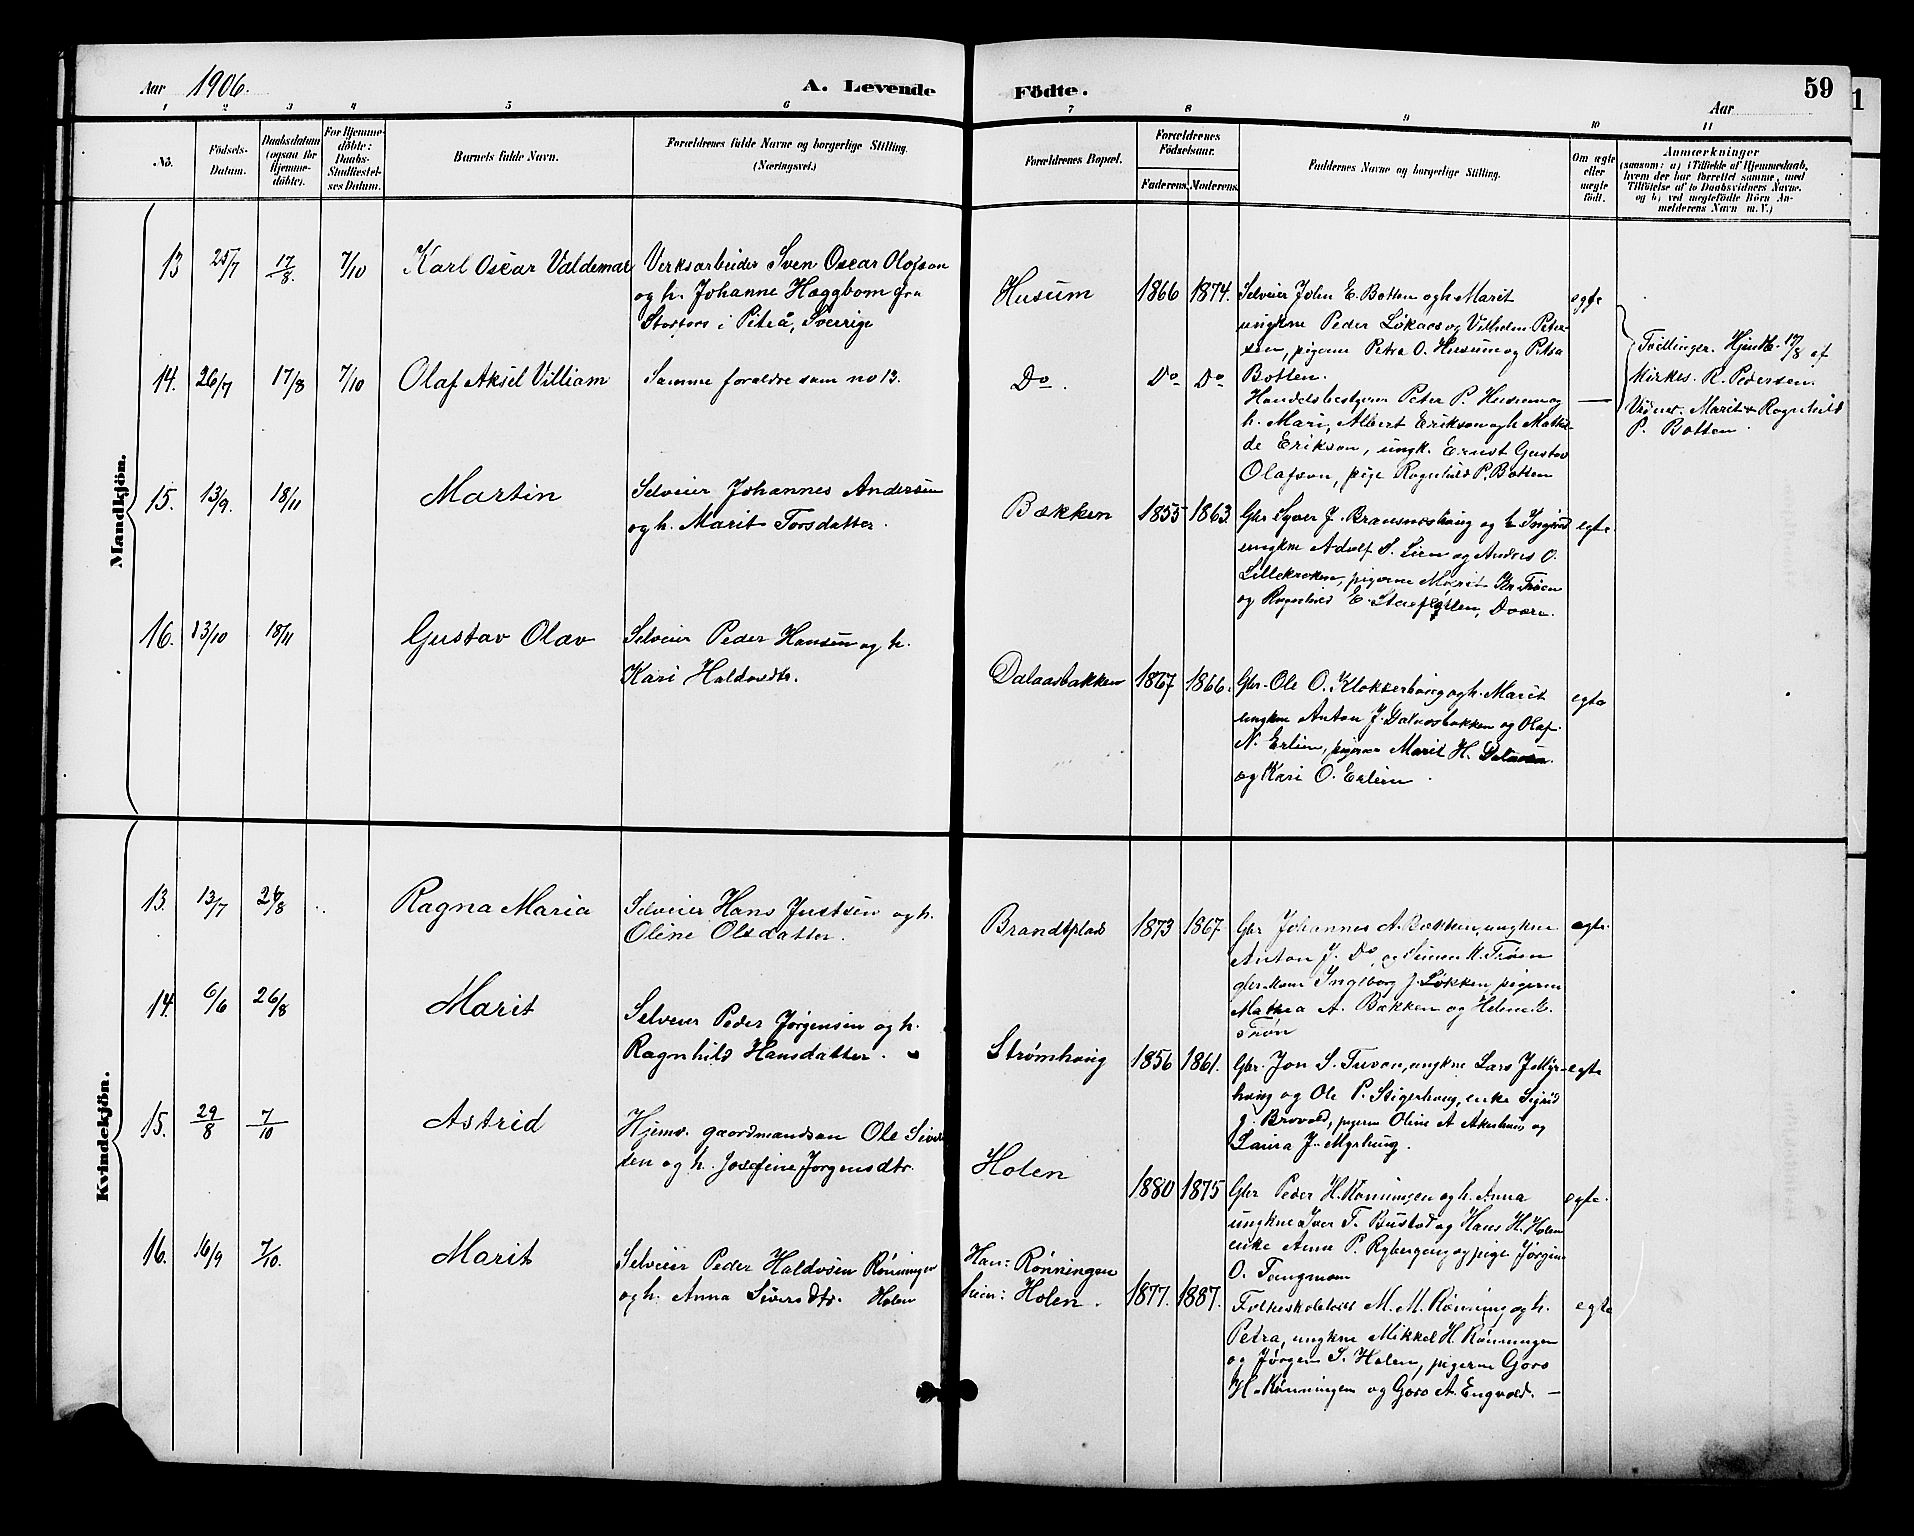 Aar 1906.
A. Levende
Födte.
Aar
59
1
1 2 3 4 5 6 7 8 9 10 11
No.
Födsels-
Datum.
Daabsdatum
(ogsaa for
Hjemme-
döbte).
For Hjemme-
döbte:
Daabs-
Stadfæstel-
ses Datum.
Barnets fulde Navn.
Forældrenes fulde Navne og borgerlige Stilling.
(Næringsvei.)
Forældrenes Bopæl.
Forældrenes
Födselsaar.
Faderens.
Moderens.
Faddernes Navne og borgerlige Stilling.
Om ægte
eller
uægte
födt.
Anmærkninger
(saasom: a) i Tilfælde af Hjemmedaab,
hvem der har forrettet samme, med
Tilföielse af to Daabsvidners Navne.
og b) ved uægtefödte Börn An-
melderens Navn m. V.)
Mandkjön.
13 25/7 17/8 7/10 Karl Oscar Valdemar
Verksarbeider Sven Oscar Olofson
og h. Johanne Hæggbom fra
Storfors i Piteå, Sverrige
Husum 1866 1874.
Selveier John E. Botten og h Marit
ungkne Peder Lökaas og Vilhelm Peter-
sen, pigerne Petra O. Husum og Petra
Botten.
egte
Tvillinger. Hjmdb. 17/8 af
Kirkes. R. Pedersen.
Vidner. Marit & Ragnhild
P. Botten.
14. 26/7 17/8 7/10 Olaf Aksel Villiam
Samme foraldre som no 13.
Do. Do Do
Handelsbestyrer Peter P. Husum og
h. Mari, Albert Erikson og h Mathil-
de Erikson, ungk. Ernst Gustav
Olafson, pige Ragnhild P. Botten
—
15. 13/9. 18/11 Martin
Selveier Johannes Andersen
og h. Marit Torsdatter.
Bækken 1855 1863.
Gbr Syver J. Bransneshaug og h Ingrid
ungkne Adolf S. Lien og Anders O.
Lillekroken, pigerne Marit Kr. Tröen
og Ragnhild E.
egte
16. 13/10 18/11 Gustav Olav
Selveier Peder Hansen og h.
Kari Haldorsdtr.
Dalaasbakken 1867 1866.
Gbr. Ole O. Klokkerhaug og h. Marit
ungkne Anton J. Dalaasbakken og Olaf
N. Erlien, pigerne Marit H. Dalaasen
og Kari O. Erlien.
egte
Kvindekjön.
13. 13/7 26/8 Ragna Maria
Selveier Hans Justsen og h.
Oline Olsdatter.
Brandtplads 1873 1867
Gbr Johannes A. Bækken, ungkne
Anton J. Do, og Simen K. Tröen
gbr. kone Ingeborg J. Løkken pigerne
Mathea A. Bakken og Helene E.
Trøn
egte.
14. 6/6 26/8 Marit
Selveier Peder Jørgensen og h.
Ragnhild Hansdatter.
Strømhaug 1856 1861.
Gbr. Jon S. Tuvan, ungkne Lars J Myr-
haug og Ole P. Stigerhaug, enke Sigrid
J. Brovold, pigerne Oline A Akerhaug og
Laura J. Myrhaug.
egte
15. 29/8 7/10 Astrid
Hjemv. gaardmandsøn Ole Siver-
sen og h. Josefine Jørgensdtr.
Holen 1880 1875
Gbr Peder H. Rønningen og h. Anna
ungkne Iver T. Bustad og Hans H. Holen
enke Anne P. Rybergeng og pige Jørgine
O. Tangmoen
egte.
16. 16/9 7/10. Marit
Selveier Peder Haldosen Rønningen
og h. Anna Siversdtr. Holen
Han: Rønningen
Hun: Holen. 1877. 1887.
Folkeskolelær M. M. Rønning og h.
Petra, ungkne Mikkel H. Rønningen
og Jørgen S. Holen, pigerne Goro
H. Rønningen og Goro A. Engvold. —
egte